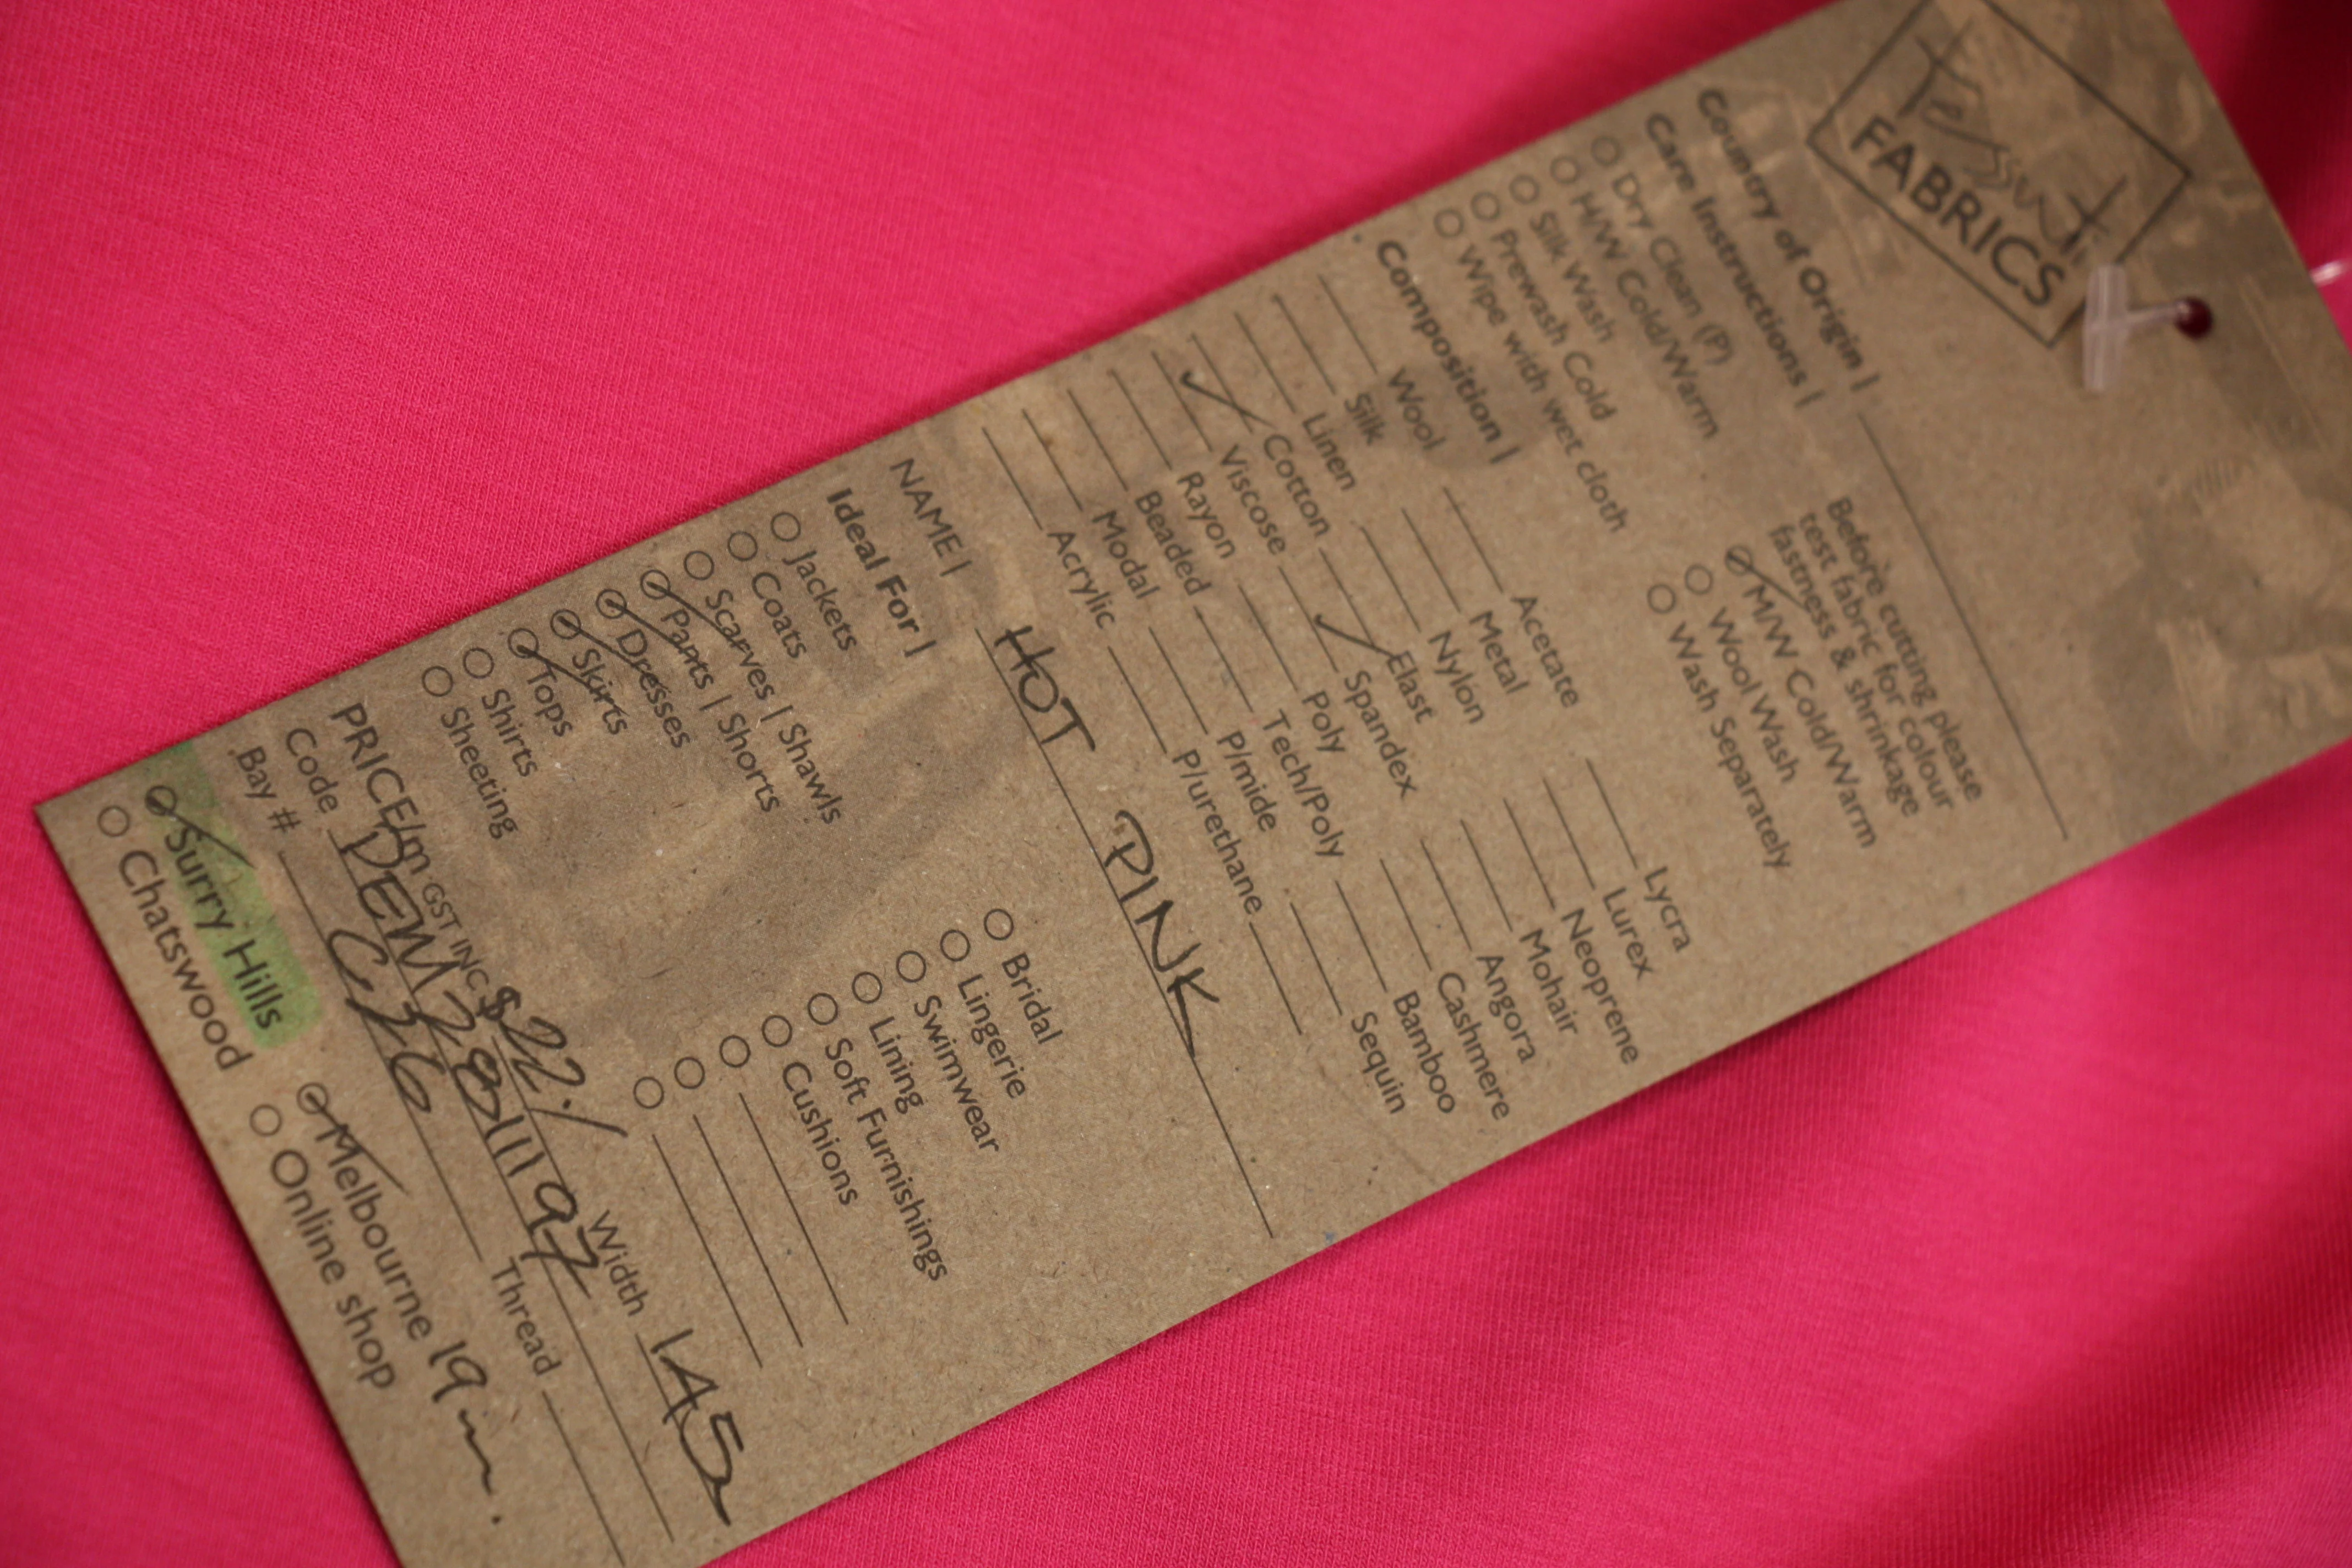 tessuti
FABRICS
Country of Origin |
Care Instructions |
Before cutting please
test fabric for colour
fastness & shrinkage
Dry Clean (P)
H/W Cold/Warm
Silk Wash
Prewash Cold
Wipe with wet cloth
M/W Cold/Warm
Wool Wash
Wash Separately
Composition |
Wool Acetate Lycra
Silk Metal Lurex
Linen Nylon Neoprene
✓ Cotton ✓ Elast Mohair
Viscose Spandex Angora
Rayon Poly Cashmere
Beaded Tech/Poly Bamboo
Modal P/mide Sequin
Acrylic P/urethane
NAME | HOT PINK
Ideal For |
Jackets Bridal
Coats Lingerie
Scarves | Shawls Swimwear
Pants | Shorts Lining
Dresses Soft Furnishings
Skirts Cushions
Tops
Shirts
Sheeting
PRICE/m GST INC $22./ Width 145
Code DEM2811197
Bay # C36 Thread
Surry Hills Melbourne 19m.
Chatswood Online shop